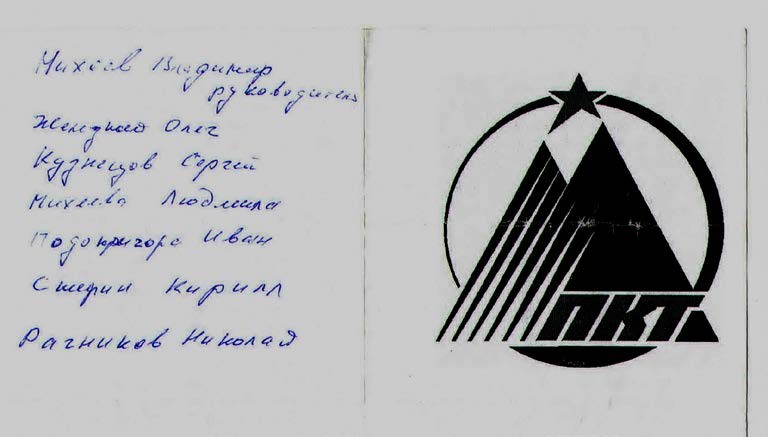 Михеев Владимир
руководитель
Олег
Кузнецов Сергей
Михеева Людмила
Подопригора Иван
Кирилл
Рачников Николай
ПКТ